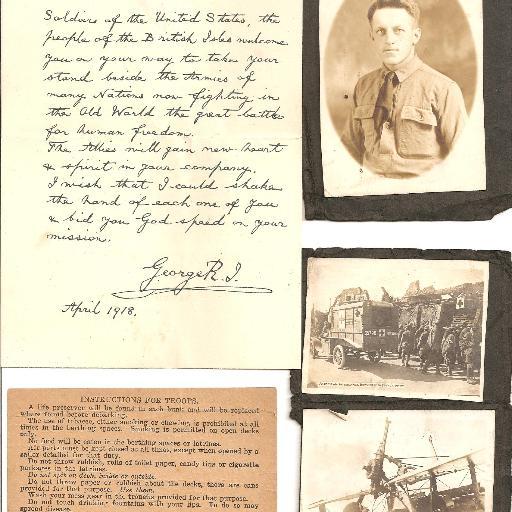 Soldiers of the United States, the
people of the British Isles welcome
you on your way to take your
stand beside the Armies of
many Nations now fighting in
the Old World the great battle
for human freedom.
The Allies will gain new heart
& spirit in your company.
I wish that I could shake
the hand of each one of you
& bid you God speed on your
mission.
George R.I.
April 1918.
INSTRUCTIONS FOR TROOPS.
A life preserver will be found in each bunk and will be replaced
where found before debarking.
The use of tobacco, either smoking or chewing, is prohibited at all
times in the berthing spaces. Smoking is permitted on open decks
only.
No food will be eaten in the berthing spaces or latrines.
Air ports must be kept closed at all times, except when opened by a
sailor detailed for that duty.
Do not throw rubbish, rolls of toilet paper, candy tins or cigarette
packages in the latrines.
Do not spit on deck, inside or outside.
Do not throw paper or rubbish about the decks, there are cans
provided for that purpose. Use them.
Wash your mess gear in the troughs provided for that purpose.
Do not touch drinking fountains with your lips. To do so may
spread disease.